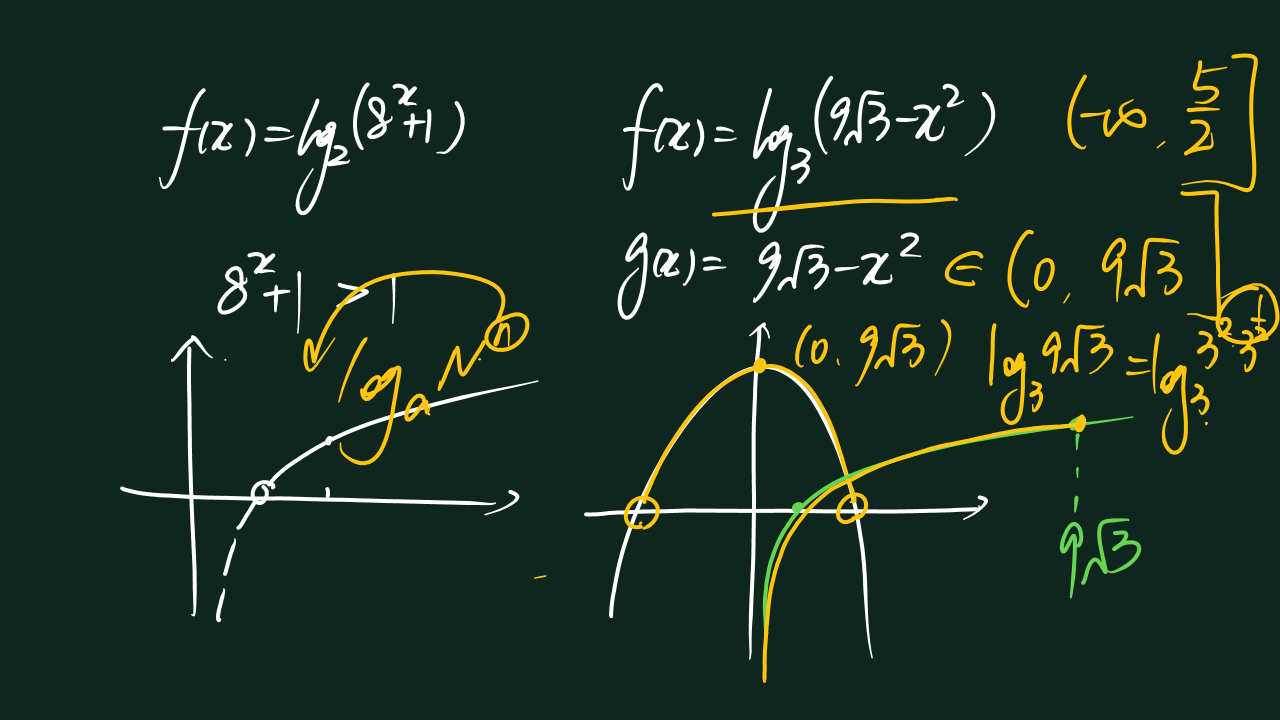 f(x)=log₂(8ˣ+1)
8ˣ+1 > 1
logₐNⁿ
f(x)=log₃(9√3-x²)
(-∞, 5/2]
g(x)= 9√3-x² ∈ (0, 9√3]
(0, 9√3)
log₃9√3 = log₃3²·3^½
9√3